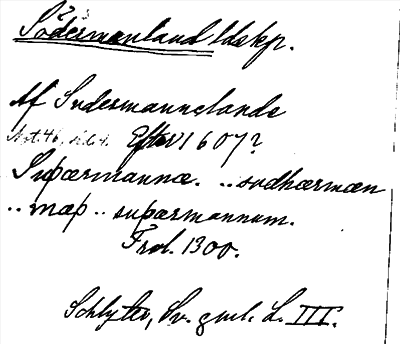 Södermanland ldskp.
Af Sudermannelande
Not. 46, s. 64. Efter 1607?
Suþærmannæ. .. sudhærmæn
.. mæþ .. suþærmannum.
Frol. 1300.
Schlyter, Sv. gml. L. III.